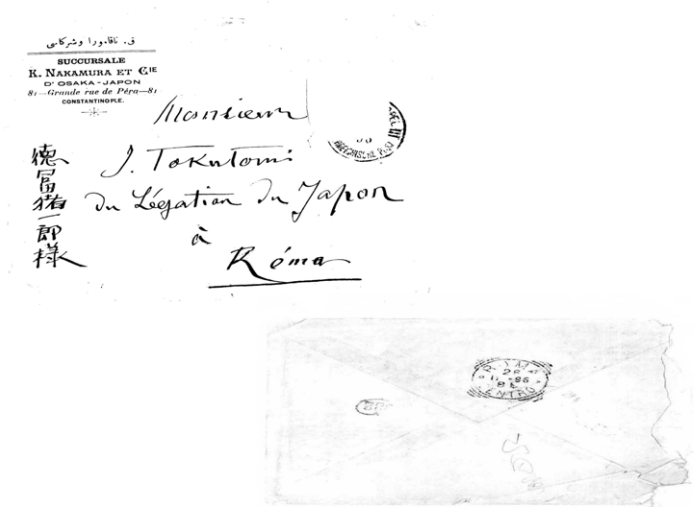 ق. ناقامورا وشركاسى
SUCCURSALE
K. NAKAMURA ET CIE
D'OSAKA-JAPON
81—Grande rue de Péra—81
CONSTANTINOPLE.
Monsieur
J. Tokutomi
du Légation du Japon
à
Róma
徳富猪一郎様